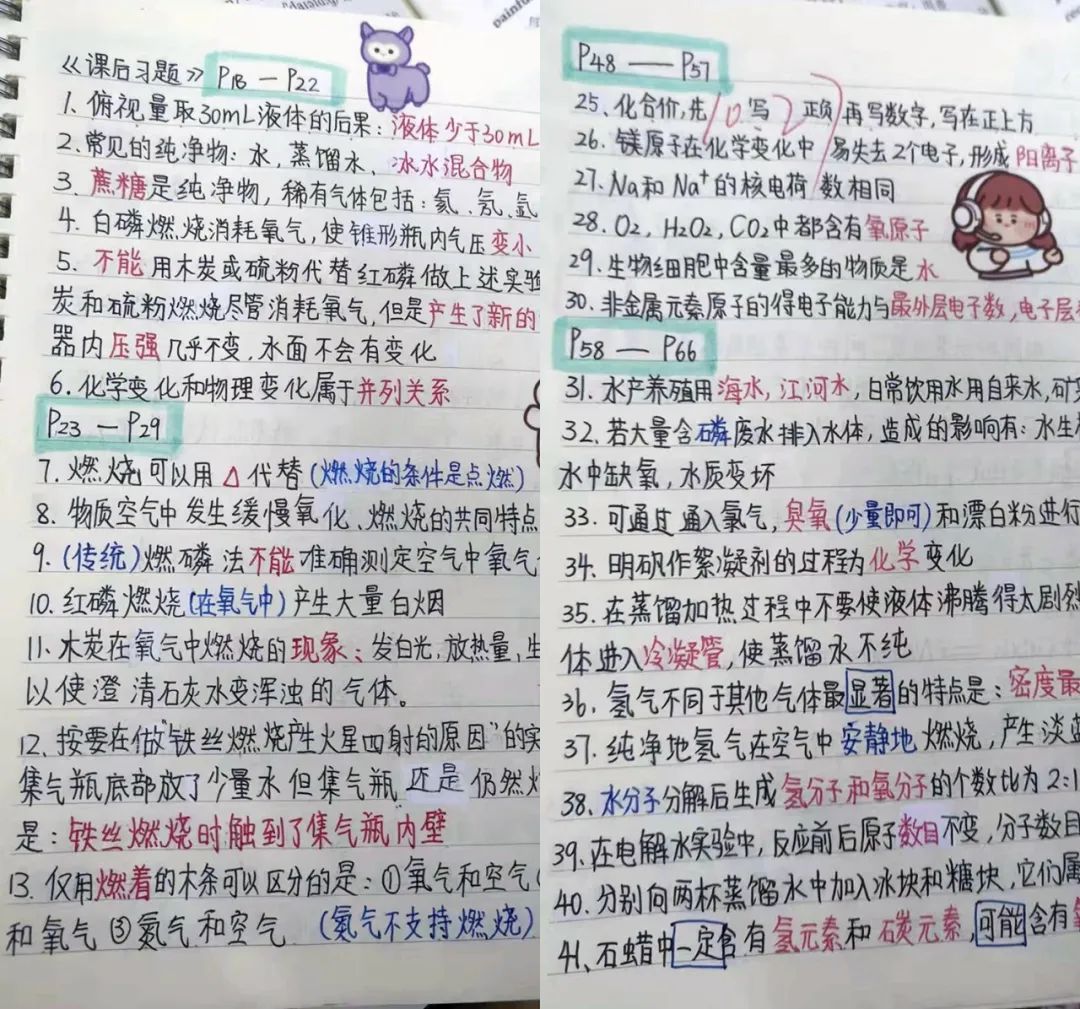 《课后习题》 P18 — P22
1. 俯视量取30mL液体的后果：液体少于30mL
2. 常见的纯净物：水，蒸馏水、冰水混合物
3. 蔗糖是纯净物，稀有气体包括：氦、氖、氩
4. 白磷燃烧消耗氧气，使锥形瓶内气压变小
5. 不能用木炭或硫粉代替红磷做上述实验
炭和硫粉燃烧尽管消耗氧气，但是产生了新的
器内压强几乎不变，水面不会有变化
6. 化学变化和物理变化属于并列关系
P23 — P29
7. 燃烧可以用△代替（燃烧的条件是点燃）
8. 物质空气中发生缓慢氧化、燃烧的共同特点
9. （传统）燃磷法不能准确测定空气中氧气
10. 红磷燃烧（在氧气中）产生大量白烟
11. 木炭在氧气中燃烧的现象：发白光，放热量，生
以使澄清石灰水变浑浊的气体。
12. 按要在做"铁丝燃烧产生火星四射的原因"的实
集气瓶底部放了少量水但集气瓶还是仍然
是：铁丝燃烧时触到了集气瓶内壁
13. 仅用燃着的木条可以区分的是：①氧气和空气
和氧气 ③氮气和空气 （氮气不支持燃烧）
P48 — P57
25、化合价，先 写 正负 再写数字，写在正上方
26. 镁原子在化学变化中 易失去2个电子，形成阳离子
27. Na和Na⁺的核电荷 数相同
28. O₂，H₂O₂，CO₂中都含有氧原子
29. 生物细胞中含量最多的物质是水
30. 非金属元素原子的得电子能力与最外层电子数，电子层
P58 — P66
31. 水产养殖用海水，江河水，日常饮用水用自来水，矿
32. 若大量含磷废水排入水体，造成的影响有：水生
水中缺氧，水质变坏
33. 可通过通入氯气，臭氧（少量即可）和漂白粉进行
34. 明矾作絮凝剂的过程为化学变化
35. 在蒸馏加热过程中不要使液体沸腾得太剧烈
体进入冷凝管，使蒸馏水不纯
36. 氢气不同于其他气体最显著的特点是：密度最
37. 纯净地氢气在空气中安静地燃烧，产生淡蓝
38. 水分子分解后生成氢分子和氧分子的个数比为2:1
39. 在电解水实验中，反应前后原子数目不变，分子数目
40. 分别向两杯蒸馏水中加入冰块和糖块，它们属
41、石蜡中一定含有氢元素和碳元素，可能含有氧